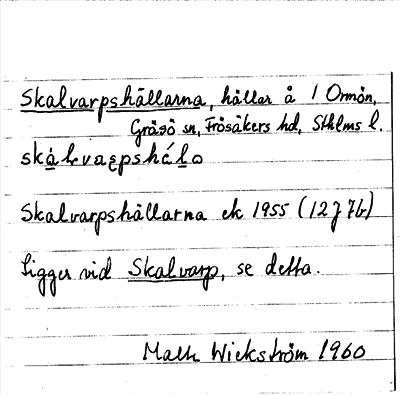 Skalvarpshällarna, hällar å / Ormön,
Gräsö sn, Frösåkers hd, Sthlms l.
Skalvarpshällarna ek 1955 (12J7b)
Ligger vid Skalvarp, se detta.
Wickström 1960